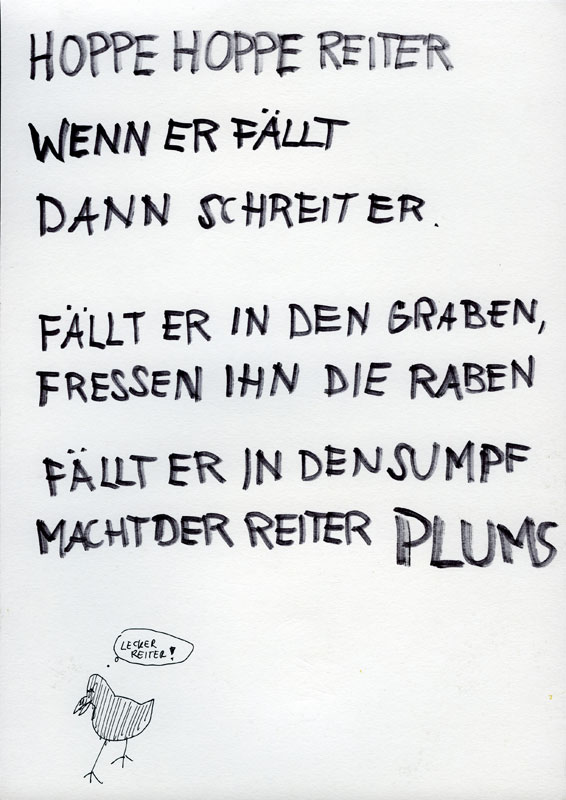 HOPPE HOPPE REITER
WENN ER FÄLLT
DANN SCHREIT ER.
FÄLLT ER IN DEN GRABEN,
FRESSEN IHN DIE RABEN
FÄLLT ER IN DEN SUMPF
MACHT DER REITER PLUMS
LECKER
REITER!